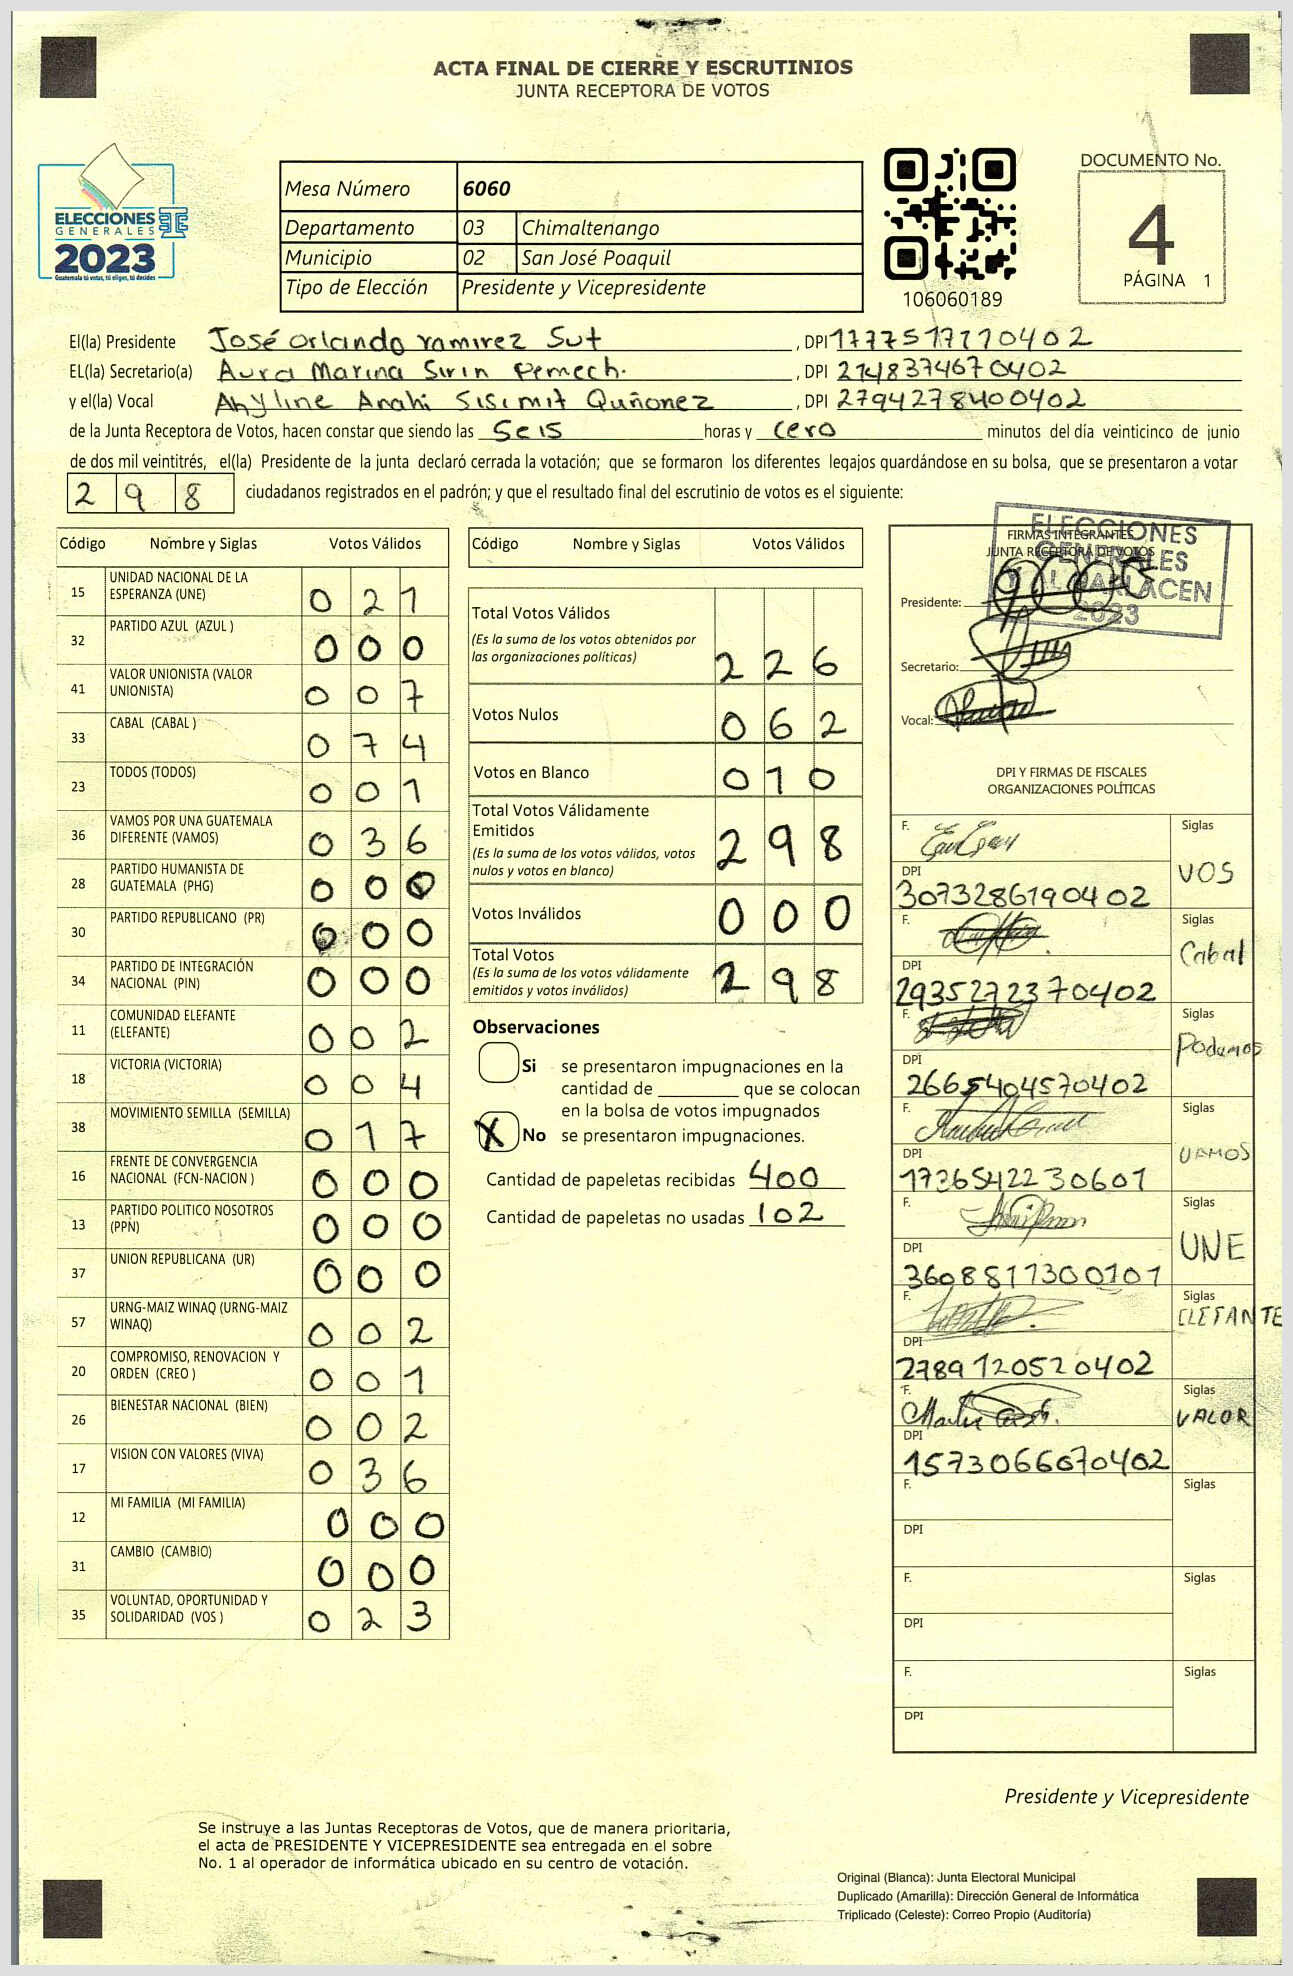 ACTA FINAL DE CIERRE Y ESCRUTINIOS
JUNTA RECEPTORA DE VOTOS
ELECCIONES
GENERALES
2023
Guatemala tú votas, tú eliges, tú decides
Mesa Número 6060
Departamento 03 Chimaltenango
Municipio 02 San José Poaquil
Tipo de Elección Presidente y Vicepresidente
106060189
DOCUMENTO No.
4
PÁGINA 1
El(la) Presidente José Orlando ramirez Sut , DPI 1777517770402
EL(la) Secretario(a) Aura Marina Sirin Pemech. , DPI 2148374670402
y el(la) Vocal Anyline Anahi Sisimit Quñonez , DPI 2794278400402
de la Junta Receptora de Votos, hacen constar que siendo las Seis horas y cero minutos del día veinticinco de junio
de dos mil veintitrés, el(la) Presidente de la junta declaró cerrada la votación; que se formaron los diferentes legajos quardándose en su bolsa, que se presentaron a votar
2 9 8 ciudadanos registrados en el padrón; y que el resultado final del escrutinio de votos es el siguiente:
Código Nombre y Siglas Votos Válidos
15 UNIDAD NACIONAL DE LA ESPERANZA (UNE) 0 2 1
32 PARTIDO AZUL (AZUL ) 0 0 0
41 VALOR UNIONISTA (VALOR UNIONISTA) 0 0 7
33 CABAL (CABAL ) 0 7 4
23 TODOS (TODOS) 0 0 1
36 VAMOS POR UNA GUATEMALA DIFERENTE (VAMOS) 0 3 6
28 PARTIDO HUMANISTA DE GUATEMALA (PHG) 0 0 0
30 PARTIDO REPUBLICANO (PR) 0 0 0
34 PARTIDO DE INTEGRACIÓN NACIONAL (PIN) 0 0 0
11 COMUNIDAD ELEFANTE (ELEFANTE) 0 0 2
18 VICTORIA (VICTORIA) 0 0 4
38 MOVIMIENTO SEMILLA (SEMILLA) 0 1 7
16 FRENTE DE CONVERGENCIA NACIONAL (FCN-NACION ) 0 0 0
13 PARTIDO POLITICO NOSOTROS (PPN) 0 0 0
37 UNION REPUBLICANA (UR) 0 0 0
57 URNG-MAIZ WINAQ (URNG-MAIZ WINAQ) 0 0 2
20 COMPROMISO, RENOVACION Y ORDEN (CREO ) 0 0 1
26 BIENESTAR NACIONAL (BIEN) 0 0 2
17 VISION CON VALORES (VIVA) 0 3 6
12 MI FAMILIA (MI FAMILIA) 0 0 0
31 CAMBIO (CAMBIO) 0 0 0
35 VOLUNTAD, OPORTUNIDAD Y SOLIDARIDAD (VOS ) 0 2 3
Código Nombre y Siglas Votos Válidos
Total Votos Válidos 2 2 6
(Es la suma de los votos obtenidos por
las organizaciones políticas)
Votos Nulos 0 6 2
Votos en Blanco 0 1 0
Total Votos Válidamente
Emitidos 2 9 8
(Es la suma de los votos válidos, votos
nulos y votos en blanco)
Votos Inválidos 0 0 0
Total Votos 2 9 8
(Es la suma de los votos válidamente
emitidos y votos inválidos)
Observaciones
Si se presentaron impugnaciones en la
cantidad de ________ que se colocan
en la bolsa de votos impugnados
X No se presentaron impugnaciones.
Cantidad de papeletas recibidas 400
Cantidad de papeletas no usadas 102
FIRMAS INTEGRANTES
JUNTA RECEPTORA DE VOTOS
ELECCIONES
GENERALES
Y AL PARLACEN
2023
Presidente:
Secretario:
Vocal:
DPI Y FIRMAS DE FISCALES
ORGANIZACIONES POLÍTICAS
F. Siglas
VOS
DPI
3073286190402
F. Siglas
Cabal
DPI
2935272370402
F. Siglas
Podemos
DPI
2665404570402
F. Siglas
VAMOS
DPI
1736542230601
F. Siglas
UNE
DPI
3608817300101
F. Siglas
ELEFANTE
DPI
2789120520402
F. Siglas
VALOR
DPI
1573066670402
F. Siglas
DPI
F. Siglas
DPI
F. Siglas
DPI
Presidente y Vicepresidente
Se instruye a las Juntas Receptoras de Votos, que de manera prioritaria,
el acta de PRESIDENTE Y VICEPRESIDENTE sea entregada en el sobre
No. 1 al operador de informática ubicado en su centro de votación.
Original (Blanca): Junta Electoral Municipal
Duplicado (Amarilla): Dirección General de Informática
Triplicado (Celeste): Correo Propio (Auditoría)